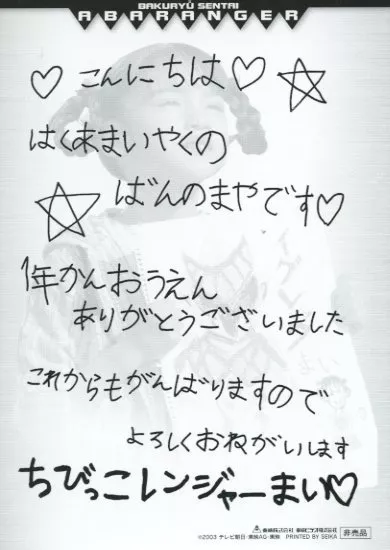 BAKURYŪ SENTAI
ABARANGER
♡こんにちは♡☆
はくあまいやくの
☆ばんのまやです♡
1年かんおうえん
ありがとうございました
これからもがんばりますので
よろしくおねがいします
ちびっこレンジャーまい♡
©2003 テレビ朝日・東映AG・東映 PRINTED BY SEIKA
非売品